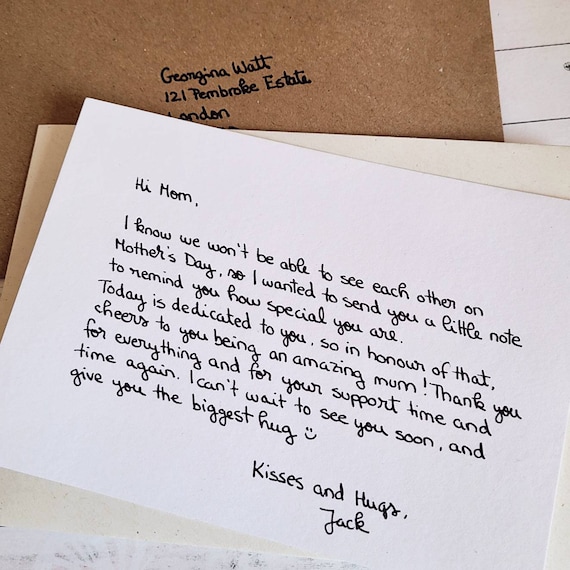 Georgina Watt
121 Pembroke Estate
London
Hi Mom,
I know we won't be able to see each other on
Mother's Day, so I wanted to send you a little note
to remind you how special you are.
Today is dedicated to you, so in honour of that,
cheers to you being an amazing mum! Thank you
for everything and for your support time and
time again. I can't wait to see you soon, and
give you the biggest hug :)
Kisses and Hugs,
Jack